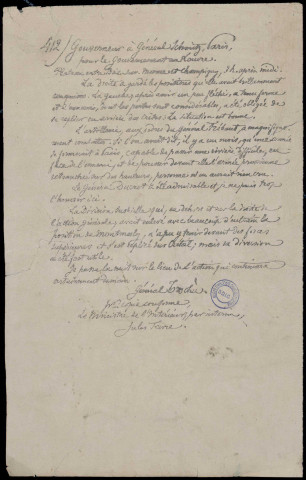 Gouverneur à Général Schmitz, Paris,
pour le Gouvernement au Louvre
Plateau entre Brie sur Marne et Champigny, 3 h. après midi.
La droite a gardé les positions qu'elle avait brillamment
conquises. La gauche, après avoir un peu fléchi, a tenu ferme
et l'ennemi, dont les pertes sont considérables, a été obligé de
se replier en arrière des crêtes. La situation est bonne.
L'artillerie, aux ordres du général Frébault, a magnifique-
ment combattu. Si l'on avait dit, il y a un mois, qu'une armée
se formerait à Paris, capable de passer une rivière difficile, en
face de l'ennemi, et de pousser devant elle l'armée prussienne
retranchée sur des hauteurs, personne n'en aurait rien cru.
Le général Ducrot a été admirable, et je ne puis trop
l'honorer ici.
La Division Susbielle qui, en dehors et sur la droite de
l'action générale, avait enlevé avec beaucoup d'entrain la
position de Montmesly, n'a pu y tenir devant des forces
supérieures et s'est repliée sur Créteil; mais sa diversion
a été fort utile.
Je passe la nuit sur le lieu de l'action qui continuera
demain.
Général Trochu
Pr Copie conforme
Le Ministre de l'Intérieur, par intérim,
Jules Favre